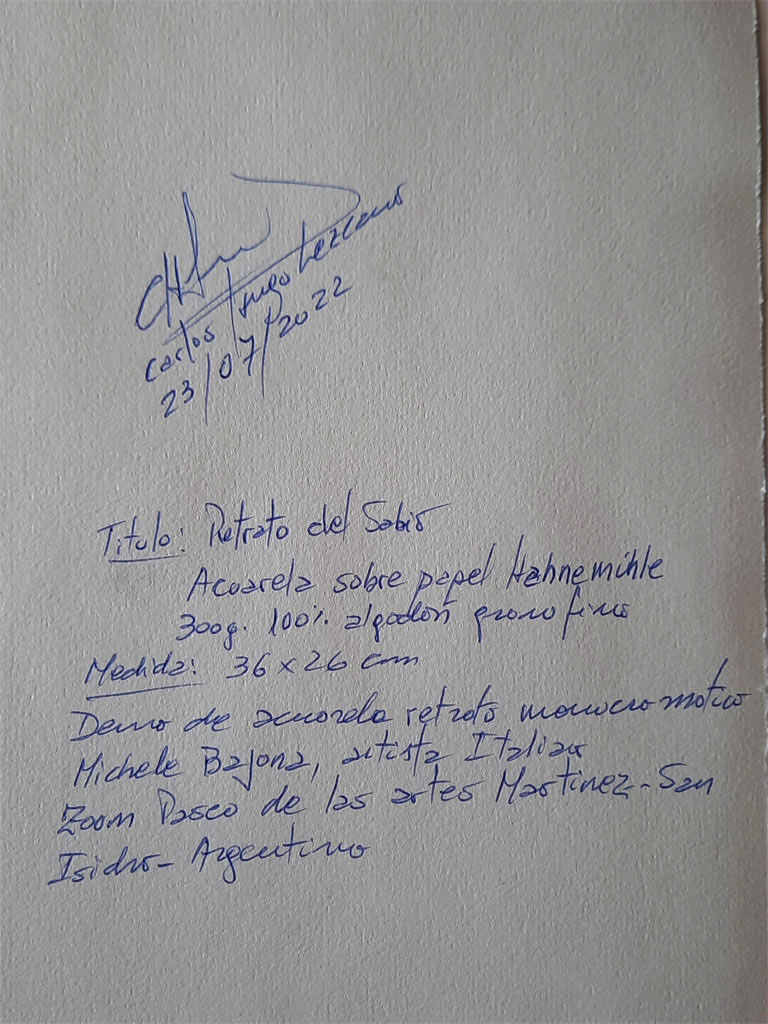 Carlos Hugo Lezcano
23/07/2022
Titulo: Retrato del Sabio
Acuarela sobre papel Hahnemihle
300g. 100% algodón grano fino
Medida: 36 x 26 cm
Demo de acuarela retrato monocromatico
Michele Bajona, artista Italiano
Zoom Paseo de las artes Martinez-San
Isidro- Argentina